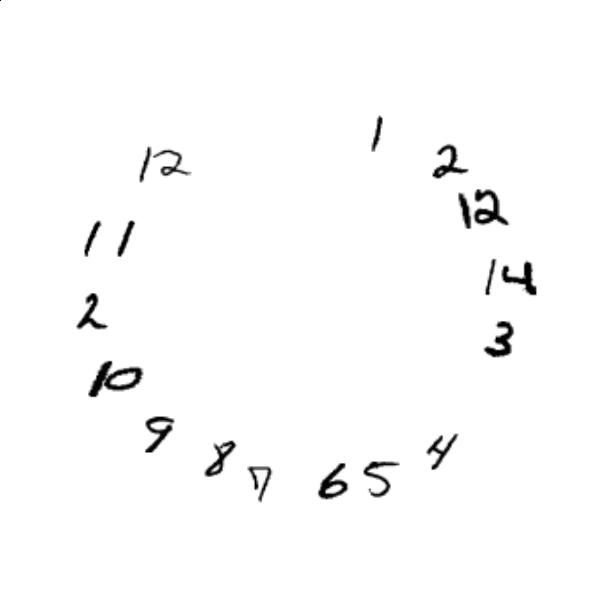 1
2
12
14
3
4
5
6
7
8
9
10
2
11
12